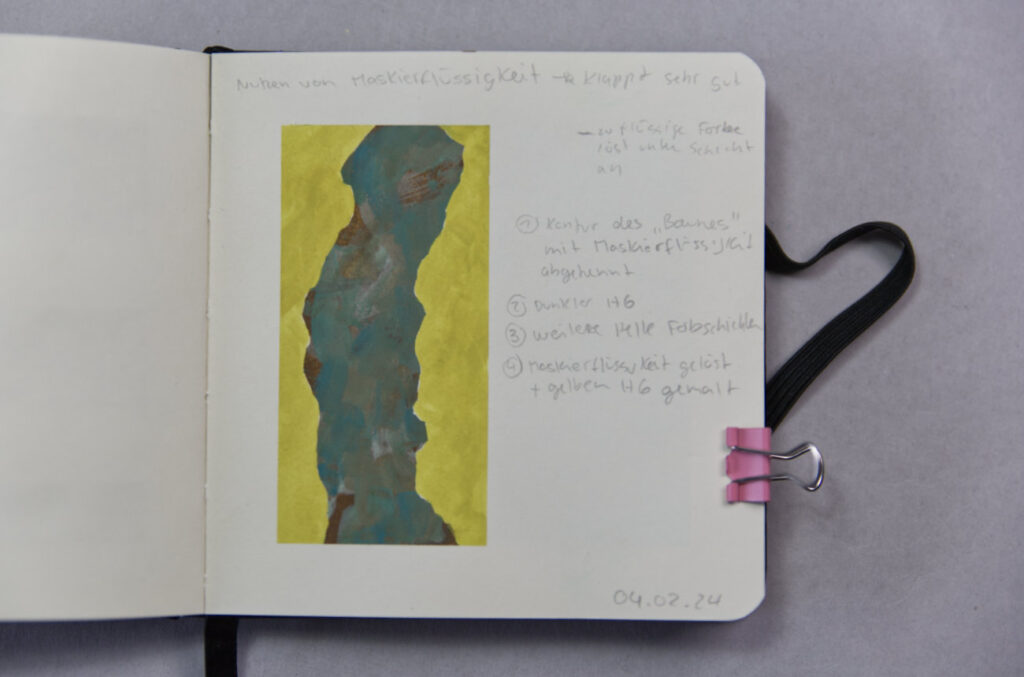 Nutzen von Maskierflüssigkeit → klappt sehr gut
– zu flüssige Farbe
löst untere Schicht
an
① Kontur des „Baumes"
mit Maskierflüssigkeit
abgetrennt
② Dunkler HG
③ weitere Helle Farbschichten
④ Maskierflüssigkeit gelöst
+ gelben HG gemalt
04.02.24